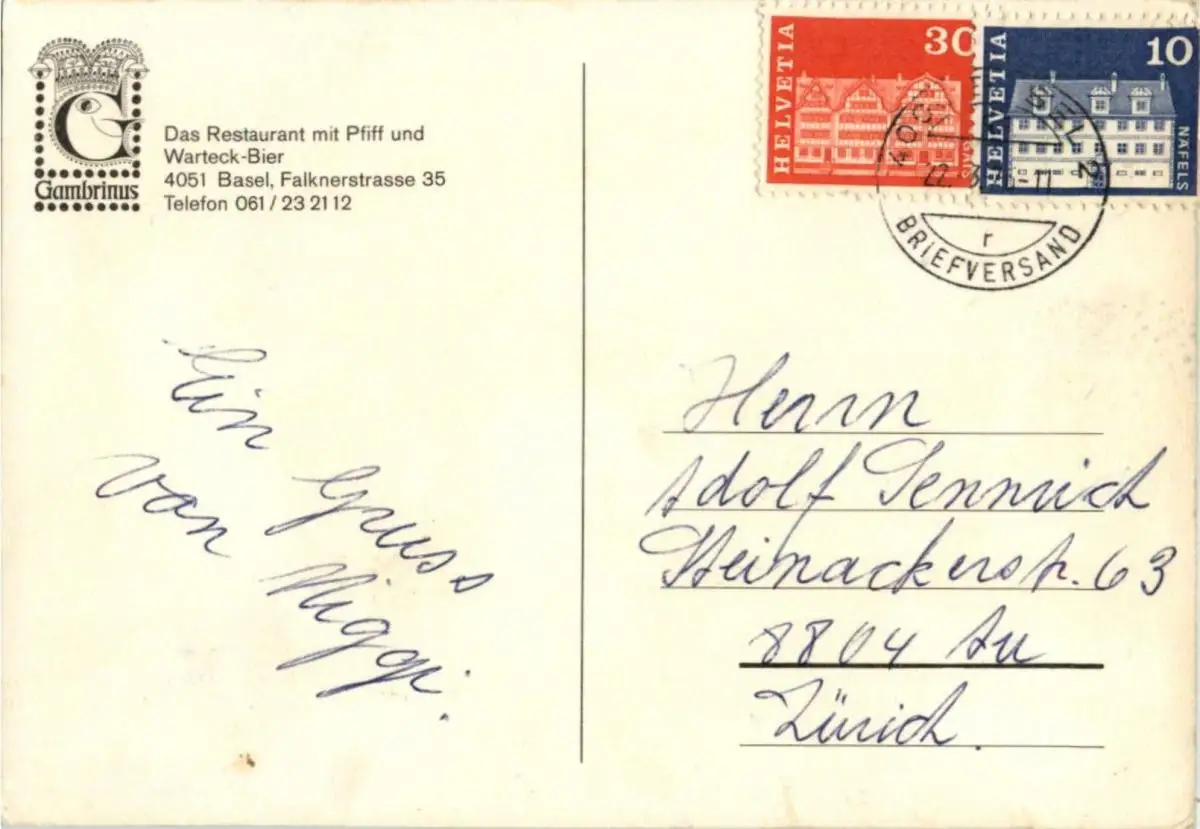 Gambrinus
Das Restaurant mit Pfiff und
Warteck-Bier
4051 Basel, Falknerstrasse 35
Telefon 061/23 21 12
HELVETIA 30 GAIS
HELVETIA 10 NÄFELS
BASEL 2
22.
r
BRIEFVERSAND
Ein Gruss
von Miggi.
Herrn
Adolf Sennrich
Steinackerstr. 63
8804 Au
Zürich.